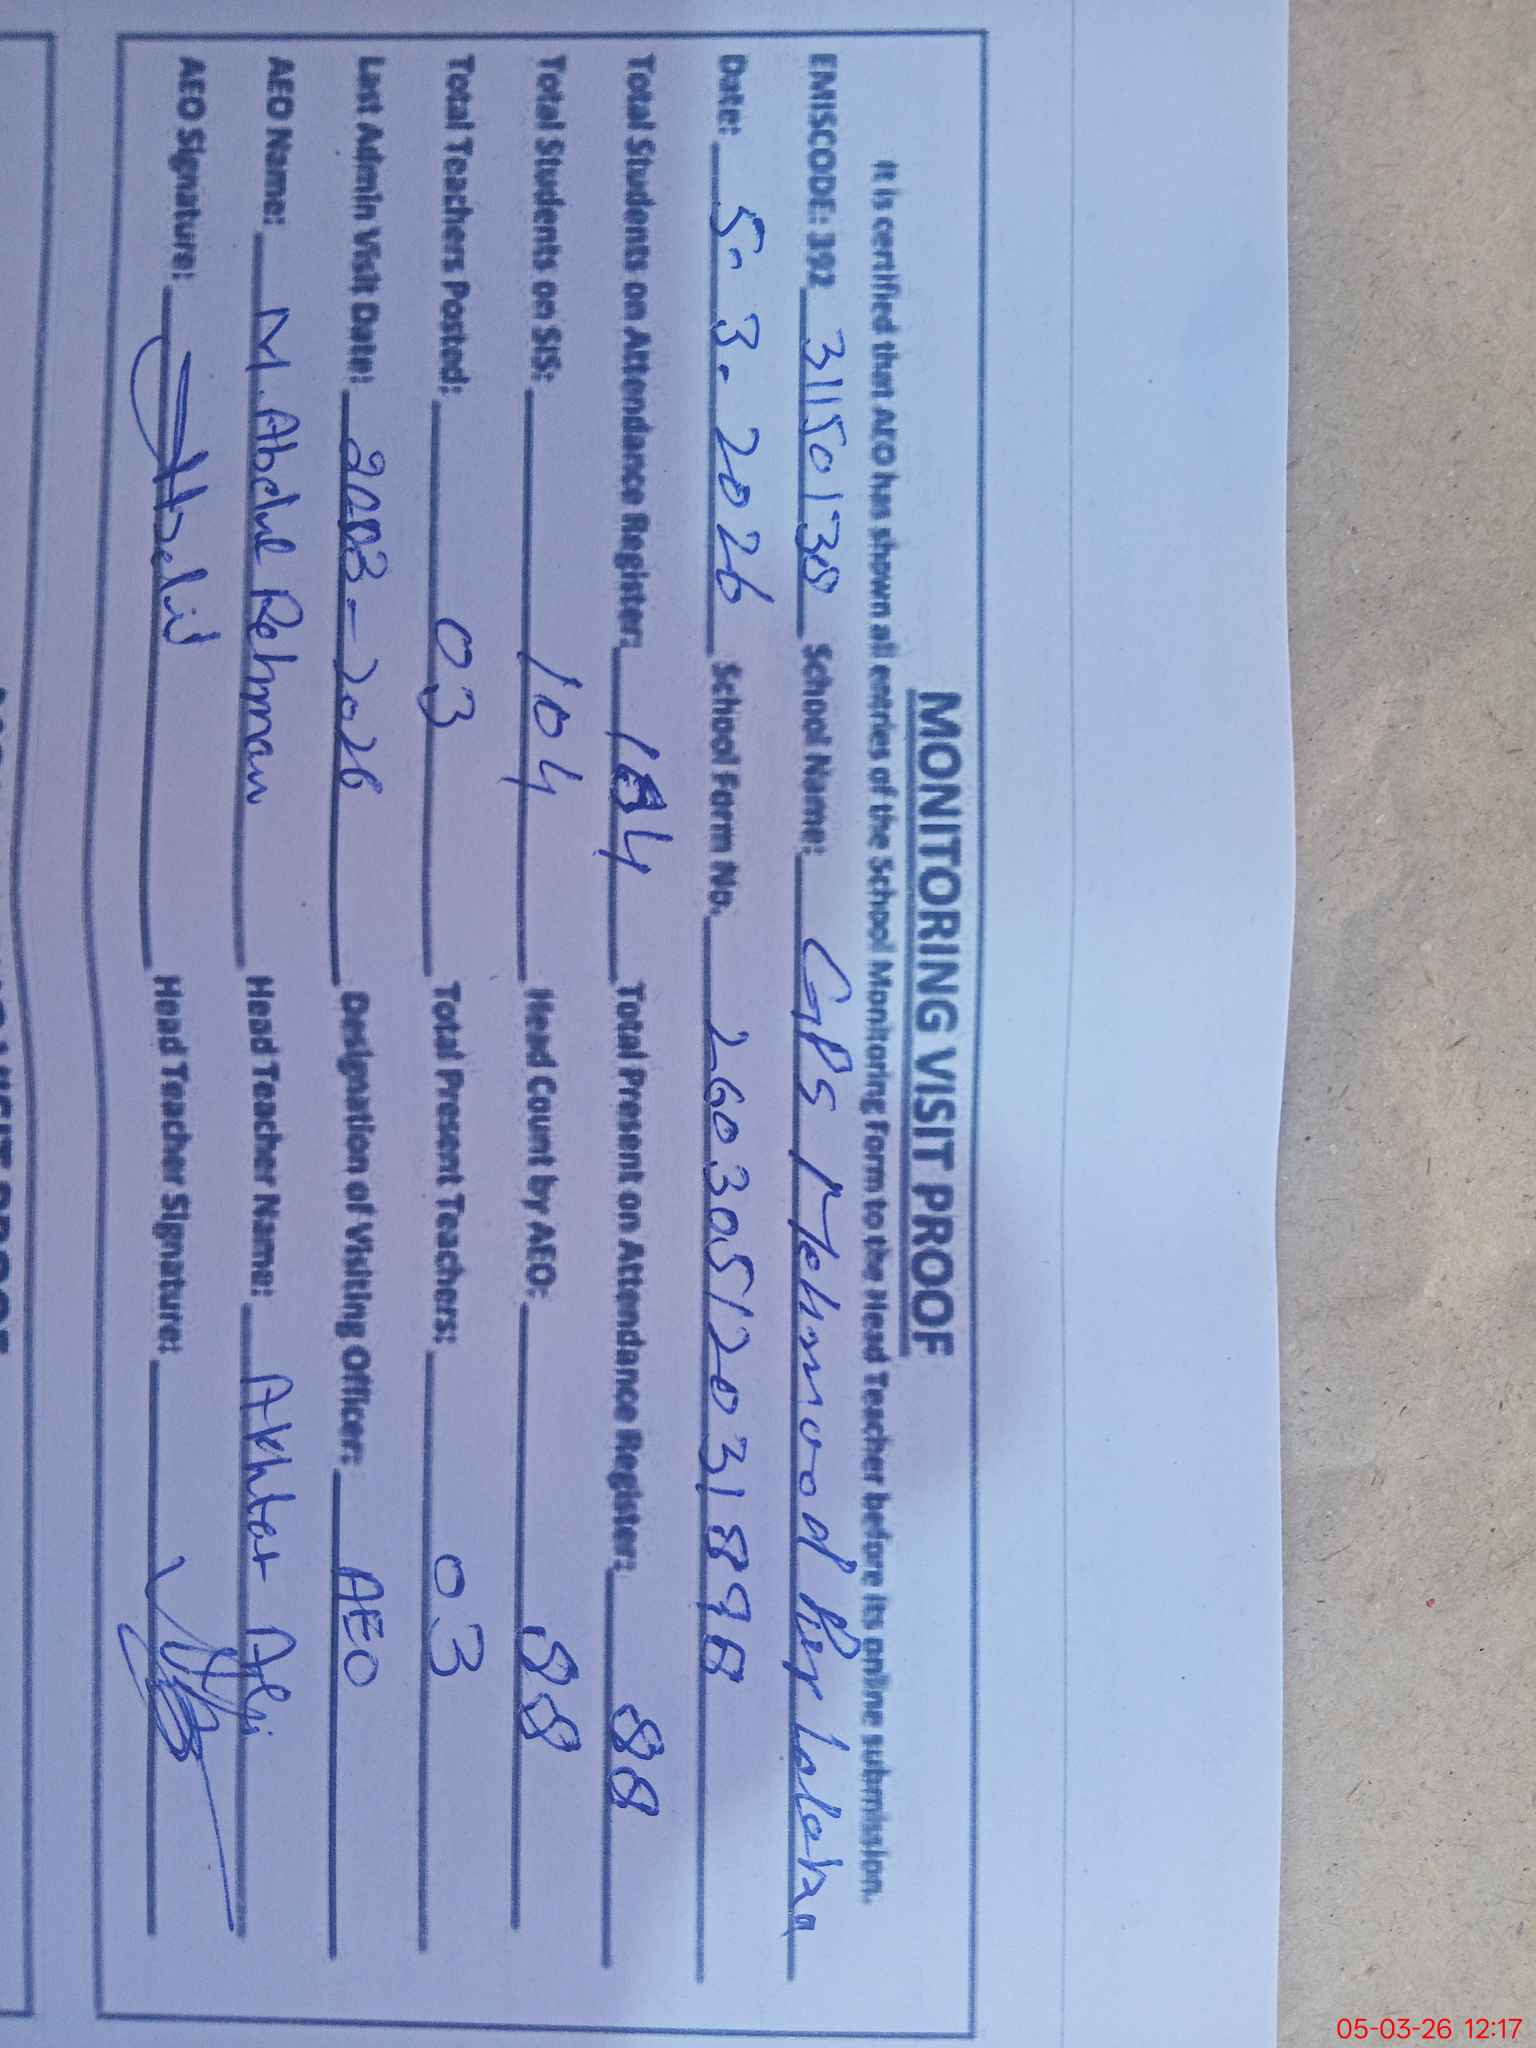 MONITORING VISIT PROOF
It is certified that AEO has shown all entries of the School Monitoring Form to the Head Teacher before its online submission.
EMISCODE: 392 31150130 School Name: GPS Mehmood Pur Lalaza
Date: 5-3-2026 School Form No. 26030512031898
Total Students on Attendance Register: 104 Total Present on Attendance Register: 88
Total Students on SIS: 104 Head Count by AEO: 88
Total Teachers Posted: 03 Total Present Teachers: 03
Last Admin Visit Date: -2026 Designation of Visiting Officer: AEO
AEO Name: M. Abdul Rehman Head Teacher Name: Akhtar Ali
AEO Signature: Head Teacher Signature:
05-03-26 12:17